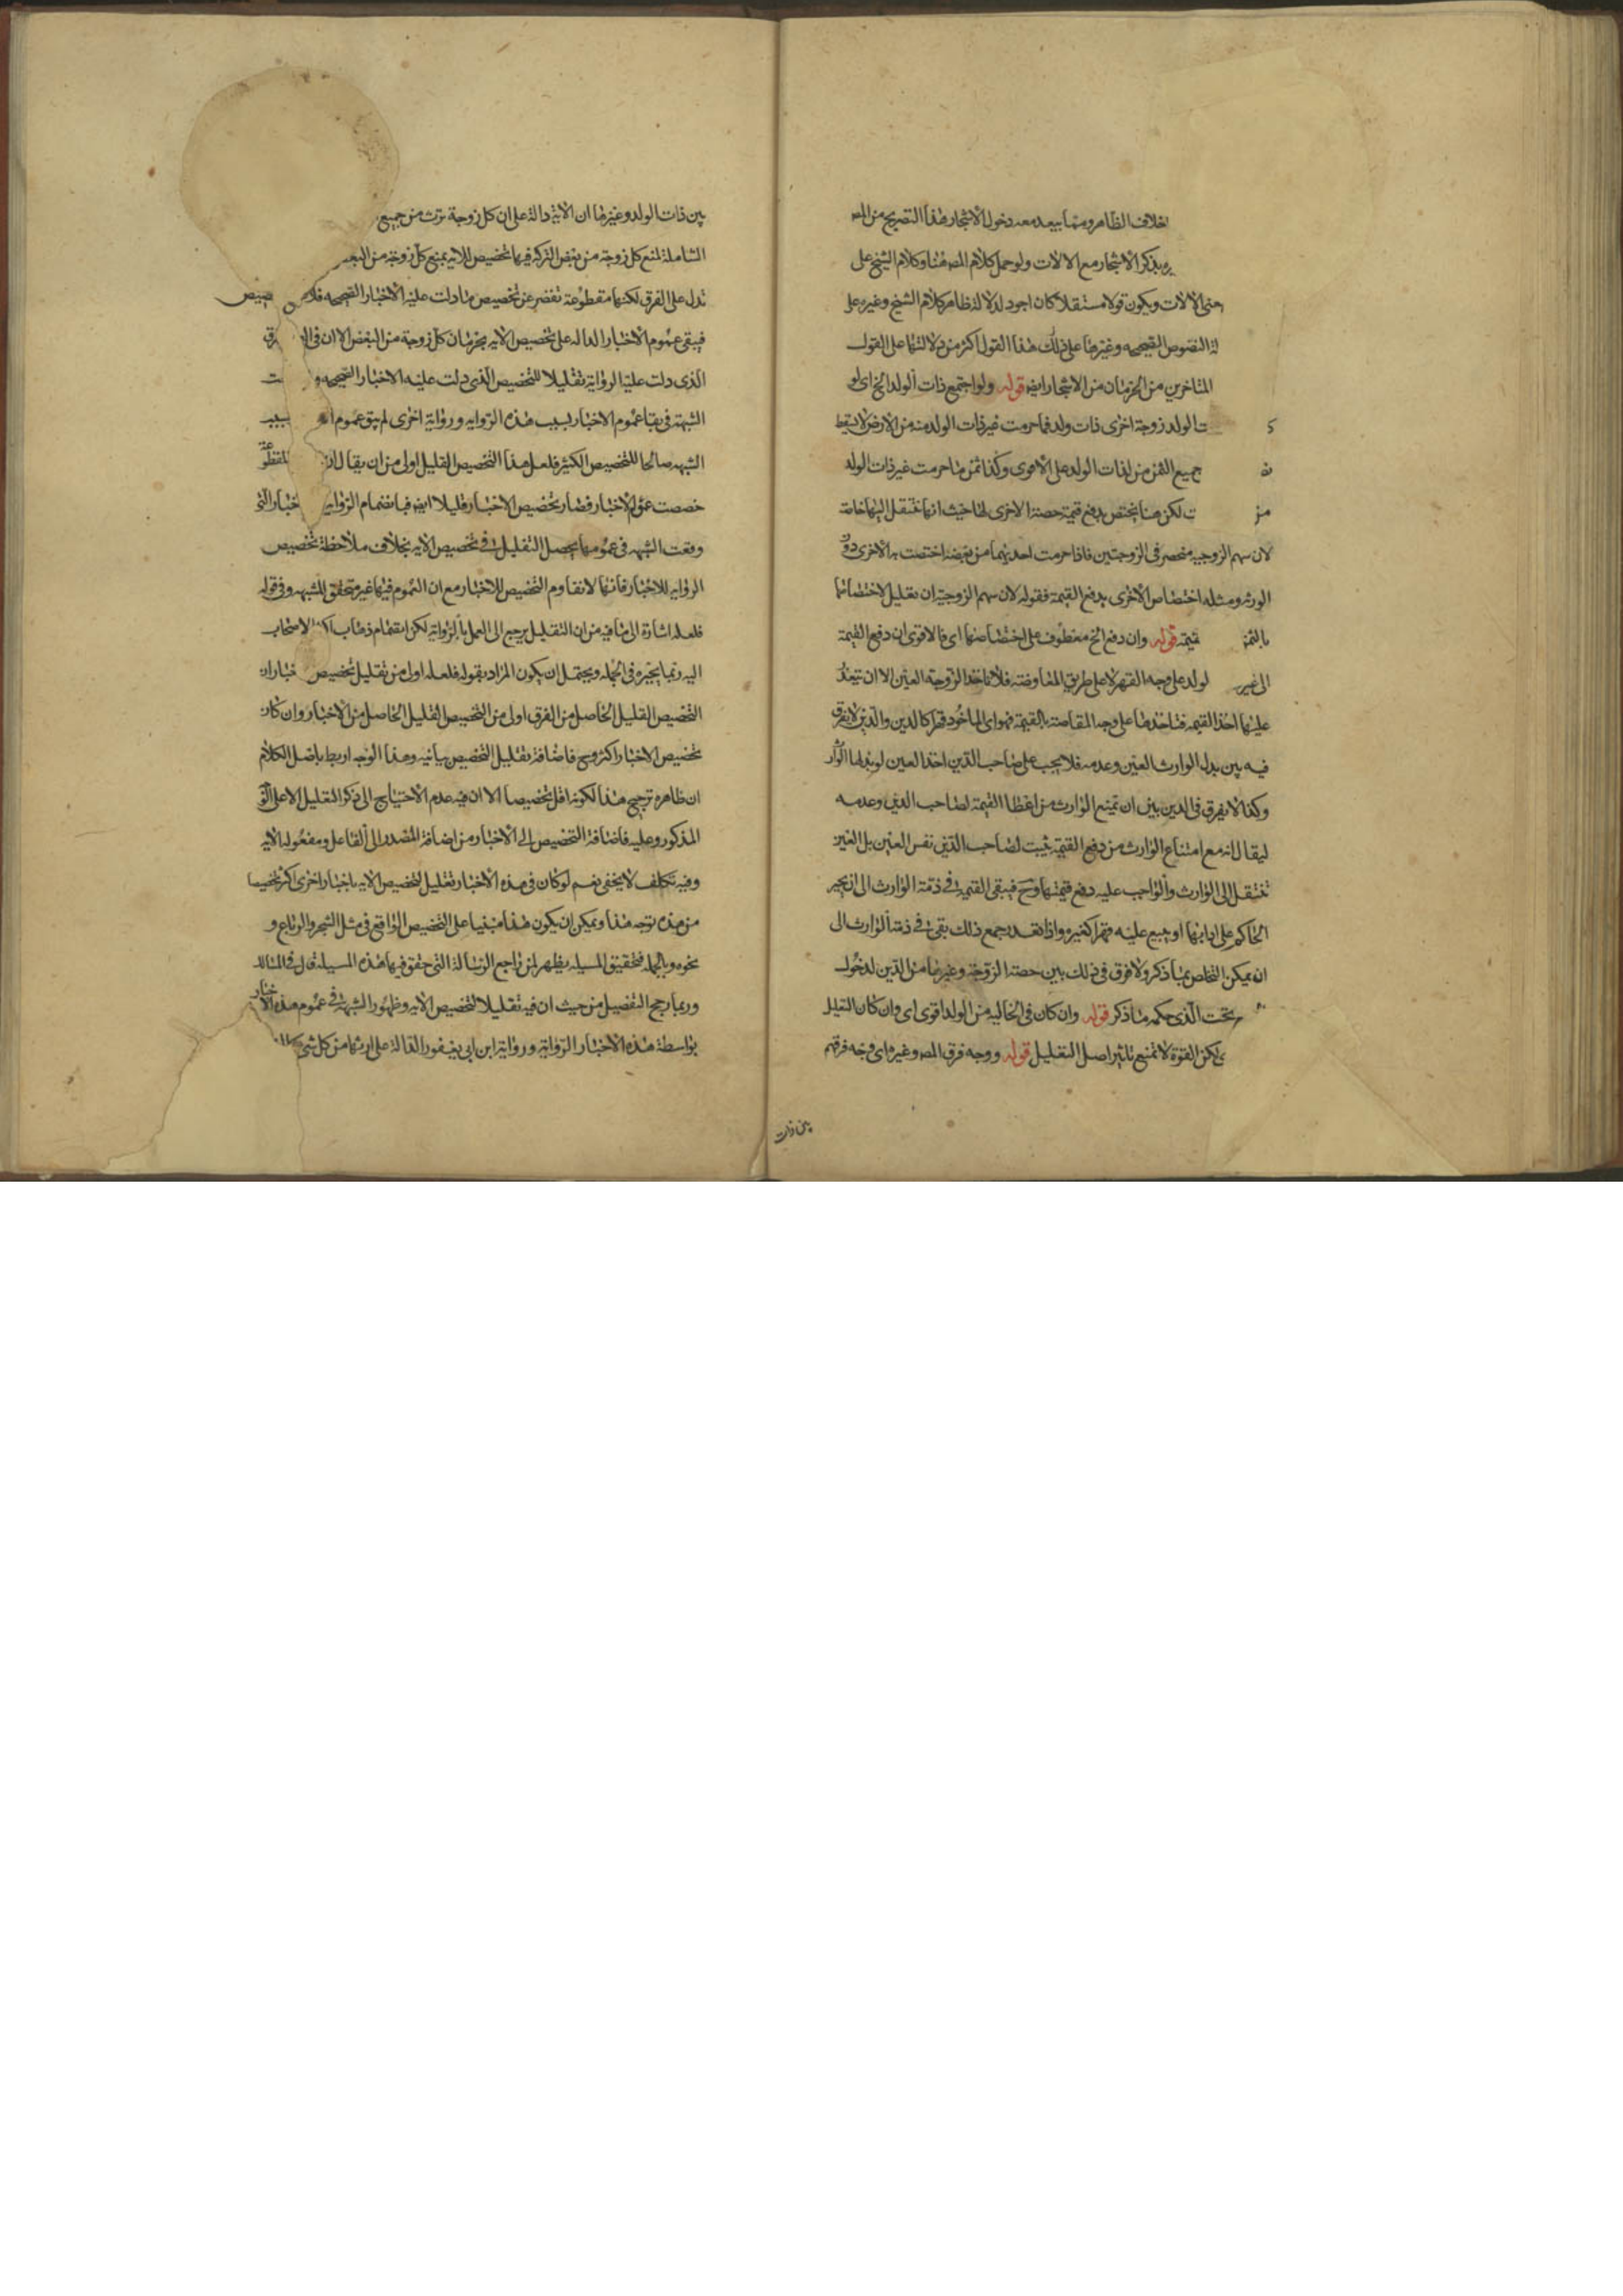 خلاف الظاهر ومما يبعد معه دخول الاشجار هذا التصريح من المص
بذكر الاشجار مع الالات ولو حمل كلام المص هنا وكلام الشيخ على
الالات ويكون قولا مستقلا كان اجود لدلالة ظاهر كلام الشيخ وغيره على
النصوص الصحيحه وغيرها على ذلك هذا القول اكثر من دلالتها على القول
المتاخرين من الحرمان من الاشجار ايض قوله ولو اجتمع ذات الولد الخ اى لو
الولد زوجة اخرى ذات ولد فما حرمت غير ذات الولد منه من الارض لا يسقط
جميع الثمن من لذات الولد على الاقوى وكذا ثمن ما حرمت غير ذات الولد
لكن هنا يختص بدفع قيمة حصة الاخرى لها حيث انها تنتقل اليها خاصة
لان سهم الزوجيه منحصر فى الزوجتين فاذا حرمت احديهما من بعضه اختصت به الاخرى دون
الورثه ومثله اختصاص الاخرى بدفع القيمة فقوله لان سهم الزوجية ان تعليل لاختصاصها
بالثمن قيمته قوله وان دفع الخ معطوف على اختصاصها اى فالاقوى ان دفع القيمة
الى غير الولد على وجه القهر لا على طريق المعاوضه فلا تاخذ الزوجة العين الا ان يتعذر
عليها اخذ القيمه فتاخذها على وجه المقاصة بالقيمة فهو اى الماخود قهرا كالدين والدين لا يفرق
فيه بين بدل الوارث العين وعدمه فلا يجب على صاحب الدين اخذ العين لو بذلها الوارث
وكذا لا يفرق فى الدين بين ان تمنع الوارث من اعطاء القيمة لصاحب الدين وعدمه
ليقال انه مع امتناع الوارث من دفع القيمة يثبت لصاحب الدين نفس العين بل العين
تنتقل الى الوارث والواجب عليه دفع قيمتها وح فيبقى القيمة فى ذمة الوارث الى ان يجبر
الحاكم على ادائها او يبيع عليه قهرا كغيره واذا تعذر جمع ذلك بقى فى ذمة الوارث الى
ان يمكن التخلص بما ذكر ولا فرق فى ذلك بين حصة الزوجة وغيرها من الدين لدخول
تحت الذى حكمه ما ذكر قوله وان كان فى الخاليه من الولد اقوى اى وان كان التعليل
لكن القوة لا تمنع تاثير اصل التعليل قوله ووجه فرق المص وغيره اى وجه فرقهم
بين ذات
بين ذات الولد وغيرها ان الاية دالة على ان كل زوجة ترث من جميع
الشاملة لمنع كل زوجة من بعض التركه فيها تخصيص للايه بمنع كل زوجة من البعض
تدل على الفرق لكنها مقطوعة تقصر عن تخصيص ما دلت عليه الاخبار الصحيحه فلا تخصيص
فيبقى عموم الاخبار الداله على تخصيص الايه بحرمان كل زوجة من البعض الا ان فى
الذى دلت عليه الرواية تقليلا للتخصيص الذى دلت عليه الاخبار الصحيحه و
الشبهة فى بقا عموم الاخبار بسبب هذه الروايه ورواية اخرى لم يبق عموم بسبب
الشبهه صالحا للتخصيص الكثير فلعل هذا التخصيص القليل اولى من ان يقال ان المقطوعة
خصصت عموم الاخبار فصار تخصيص الاخبار قليلا ايض فبانضمام الرواية الاخبار التى
وقعت الشبهه فى عمومها يحصل التقليل فى تخصيص الايه بخلاف ملاحظة تخصيص
الروايه للاخبار فانها لا تقاوم التخصيص للاخبار مع ان العموم فيها غير متحقق للشبهه وفى قوله
فلعله اشارة الى ما فيه من ان التقليل يرجع الى العمل بالرواية لكن انضمام ذهاب اكثر الاصحاب
اليه ربما يجبره فى الجمله ويحتمل ان يكون المراد بقوله فلعله اولى من تقليل تخصيص الاخبار ان
التخصيص القليل الحاصل من الفرق اولى من التخصيص القليل الحاصل من الاخبار وان كان
تخصيص الاخبار اكثر وح فاضافة تقليل التخصيص بيانيه وهذا الوجه اربط باصل الكلام
ان ظاهره ترجيح هذا لكونه اقل تخصيصا الا ان فيه عدم الاحتياج الى ذكر التعليل الا على
المذكور وعليه فاضافة التخصيص الى الاخبار من اضافة المصدر الى الفاعل ومفعوله الايه
وفيه تكلف لا يخفى نعم لو كان فى هذه الاخبار تعليل لتخصيص الايه باخبار اخرى اكثر تخصيصا
من هذه توجه هذا ويمكن ان يكون هذا مبنيا على التخصيص الواقع فى مثل الشجر والرباع و
نحوه وبالجمله فتحقيق المسيله يظهر لمن راجع الرسالة التى حقق فيها هذه المسيلة قال فى المسالك
وربما رجح التفصيل من حيث ان فيه تقليلا لتخصيص الايه وظهور الشبهة فى عموم هذه الاخبار
بواسطة هذه الاخبار الرواية ورواية ابن ابى يعفور الدالة على ارثها من كل شى